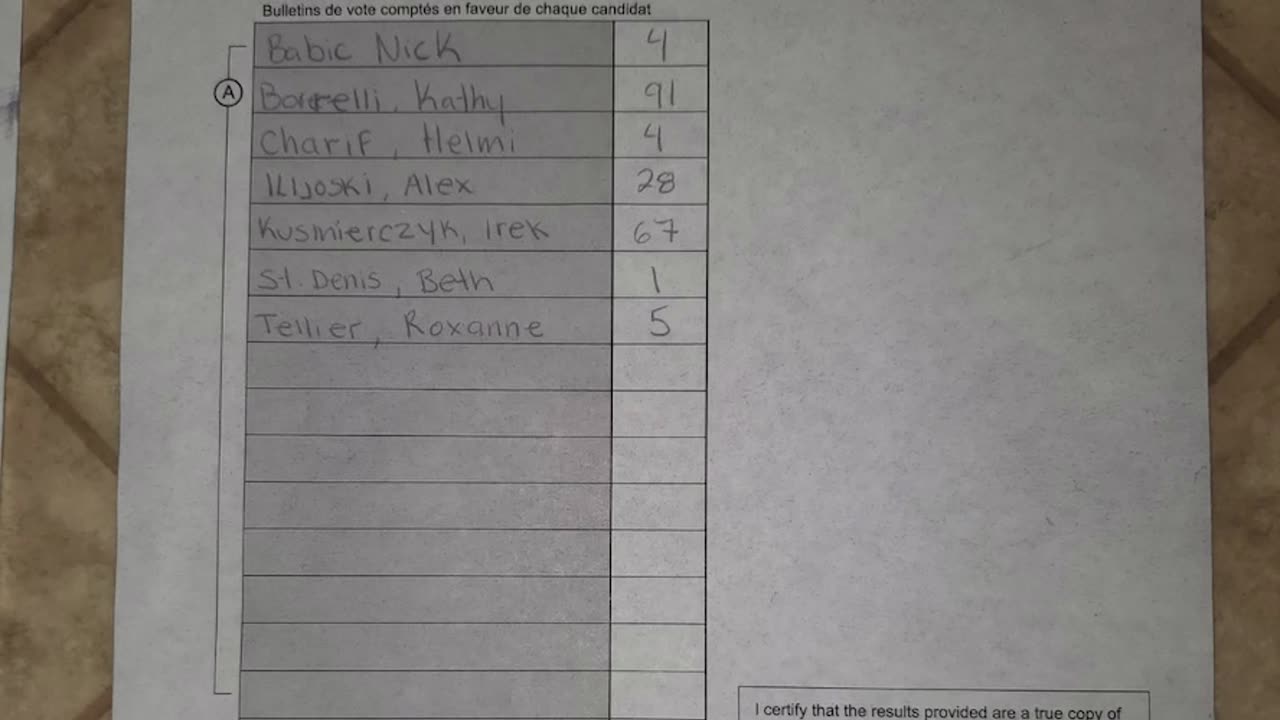 Bulletins de vote comptés en faveur de chaque candidat
Babic Nick 4
A Borrelli, Kathy 91
Charif, Helmi 4
Ilijoski, Alex 28
Kusmierczyk, Irek 67
St. Denis, Beth 1
Tellier, Roxanne 5
I certify that the results provided are a true copy of